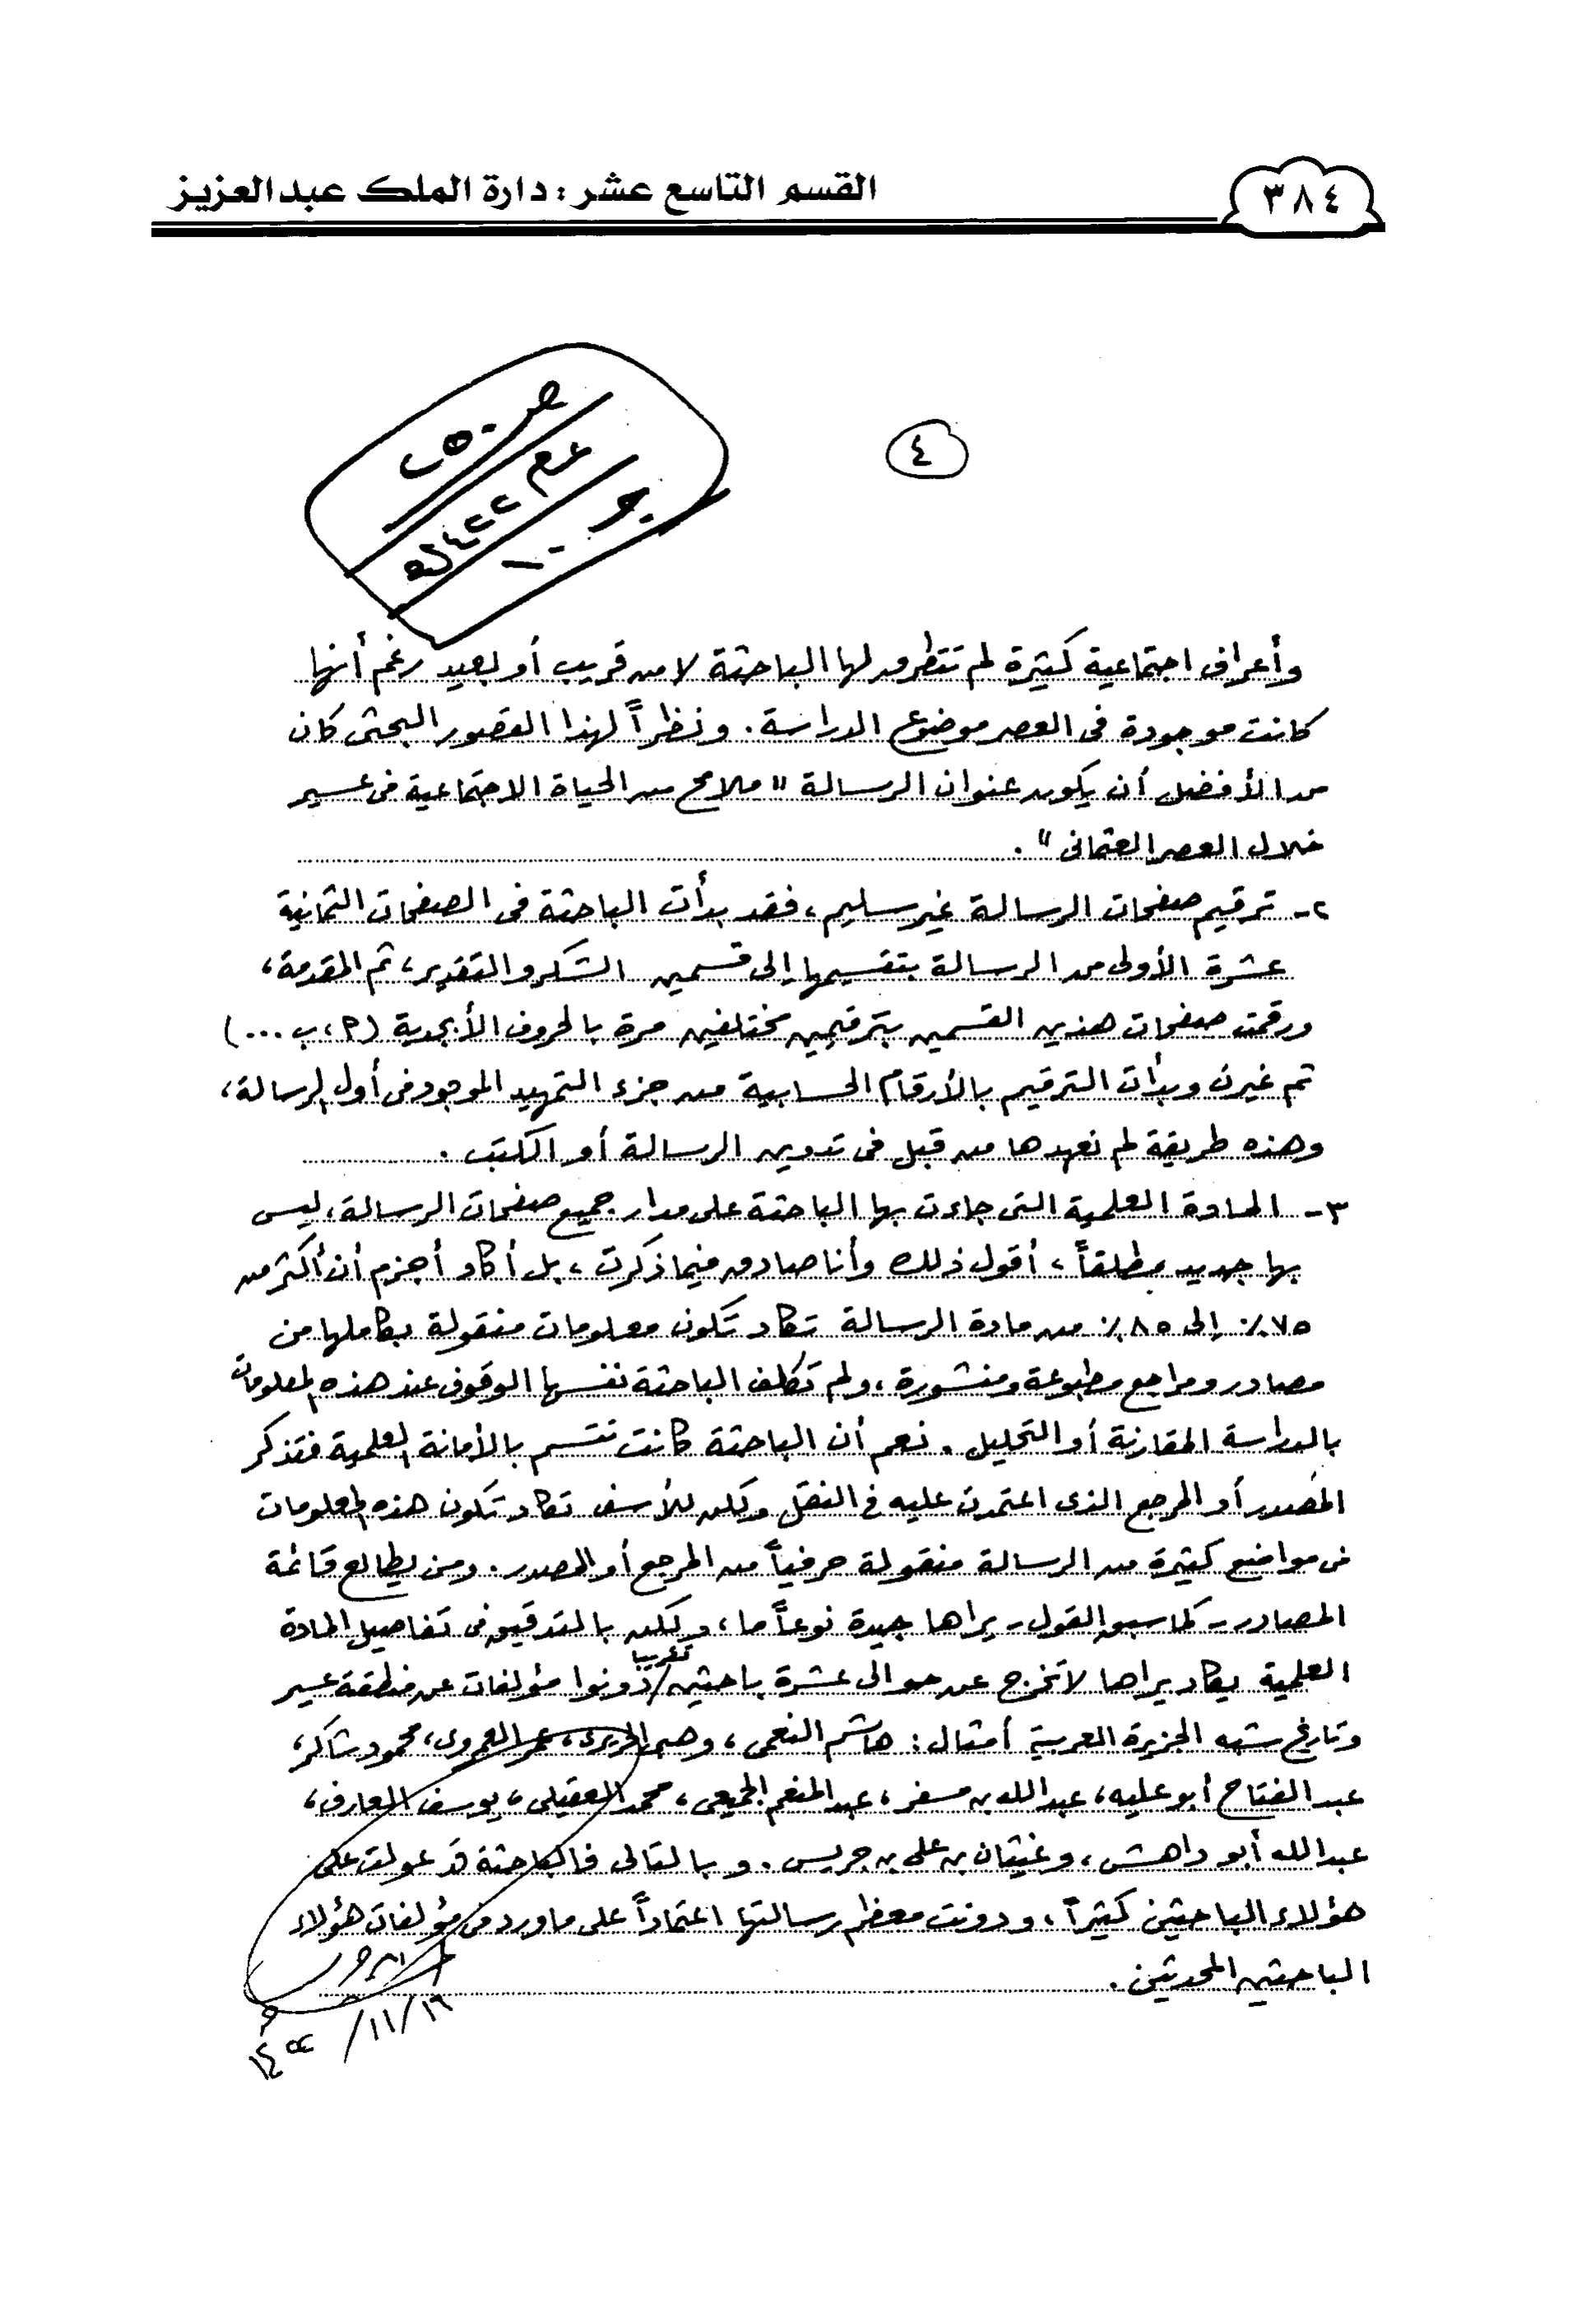 ٣٨٤
القسم التاسع عشر : دارة الملك عبدالعزيز
٤
وأعراف اجتماعية كثيرة لم تتطرق لها الباحثة لا من قريب أو بعيد رغم أنها
كانت موجودة فى العصر موضوع الدراسة . ونظراً لهذا القصور البحثى كان
من الأفضل أن يكون عنوان الرسالة " ملامح من الحياة الاجتماعية فى عسير
خلال العصر العثمانى " .
٢- ترقيم صفحات الرسالة غير سليم ، فقد بدأت الباحثة فى الصفحات الثمانية
عشرة الأولى من الرسالة بتقسيمها إلى قسمين الشكر والتقدير ، ثم المقدمة ،
ورقمت صفحات هذين القسمين بترقيمين مختلفين مرة بالحروف الأبجدية (أ ، ب ...)
ثم غيرت وبدأت الترقيم بالأرقام الحسابية من جزء التمهيد الموجود فى أول الرسالة ،
وهذه طريقة لم نعهدها من قبل فى تدوين الرسالة أو الكتب .
٣- المادة العلمية التى جاءت بها الباحثة على مدار جميع صفحات الرسالة ، ليس
بها جديد مطلقاً ، أقول ذلك وأنا صادق فيما ذكرت ، بل أكاد أجزم أن أكثر من
٧٥٪ إلى ٨٥٪ من مادة الرسالة تكاد تكون معلومات منقولة بكاملها من
مصادر ومراجع مطبوعة ومنشورة ، ولم تكلف الباحثة نفسها الوقوف عند هذه المعلومات
بالدراسة المقارنة أو التحليل . نعم أن الباحثة كانت تتسم بالأمانة العلمية فتذكر
المصدر أو المرجع الذى اعتمدت عليه فى النقل ولكن للأسف تكاد تكون هذه المعلومات
فى مواضع كثيرة من الرسالة منقولة حرفياً من المرجع أو المصدر . ومن يطالع قائمة
المصادر - كما سبق القول - يراها جيدة نوعاً ما ، ولكن بالتدقيق فى تفاصيل المادة
العلمية يكاد يراها لا تخرج عن حوالى عشرة باحثين / تقريبا دونوا مؤلفات عن منطقة عسير
وتاريخ شبه الجزيرة العربية أمثال : هاشم النعمى ، وصبحى الحريرى ، عمر العمروى ، محمود شاكر ،
عبد الفتاح أبو عليه ، عبدالله بن مسفر ، عبد المنعم الجميعى ، محمد العقيلى ، يوسف العارف ،
عبدالله أبو داهش ، وغيثان بن على بن جريس . وبالتالى فالباحثة قد عولت على
هؤلاء الباحثين كثيراً ، ودونت معظم رسالتها اعتماداً على ما ورد فى مؤلفات هؤلاء
الباحثين المحدثين .